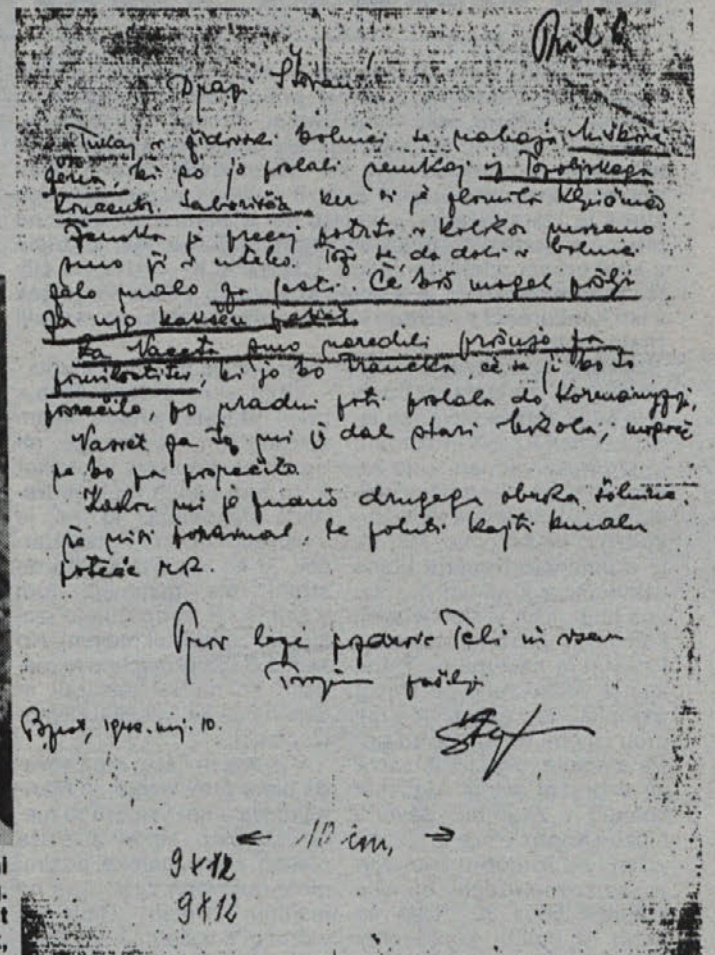 Dragi Števan!
Tukaj v židovski bolnici se nahaja Kuškova
žena, ki so jo poslali semkaj iz Topoljskega
koncentr. taborišča ker si je zlomila ključnico
Ženska je precej potrta v kolikor moremo
smo ji v uteho. Toži se, da dobi v bolnici
zelo malo za jesti. Če boš mogel pošlji
za njo kakšen paket.
Za Vaceta smo naredili prošnjo za
pomilostitev, ki jo bo Trančka, če se ji bo to
posrečilo, po uradni poti poslala do
Nasvet za to mi je dal stari mogoče
se bo pa posrečilo.
Kakor mi je znano drugega obroka
še nisi te pohiti kajti kmalu
poteče rok.
Prav lepe pozdrave Teli in vsem
Tvojim pošilja
Bpest, 1942. maj. 10.
← 10 cm, →
9×12
9×12
t